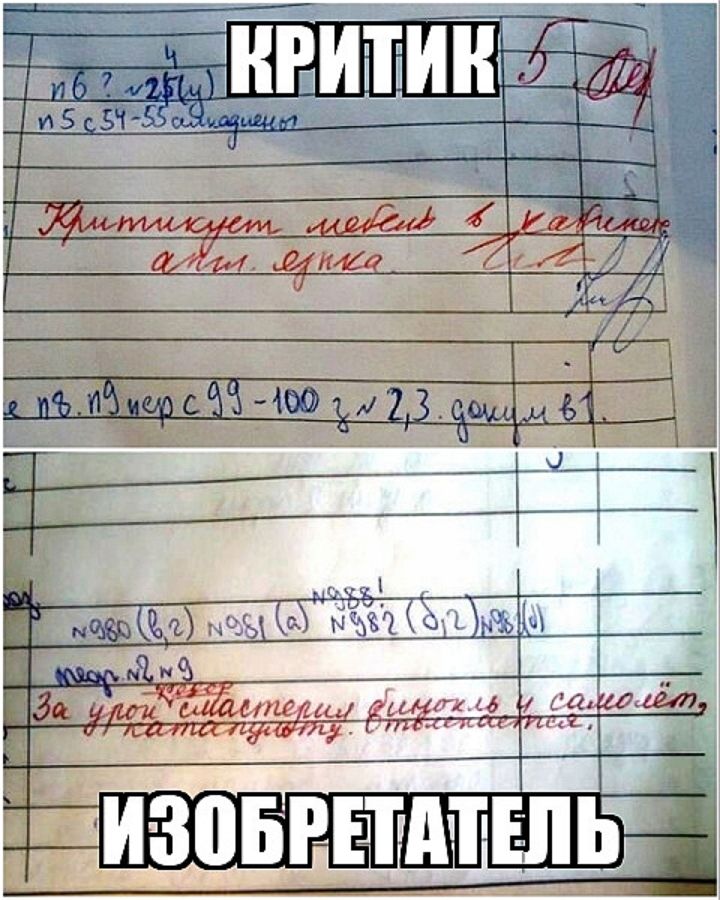 КРИТИК
4
5
п6 ? №25(у)
п5 с 54-55 алкадиены
5
Критикует мебель в кабинете
англ. языка
е п8. п9 пер с 99-100 з№2,3. докум в 1.
№988!
№980 (в,г) №981 (а) №982 (б,г)
№2 №9
За урок смастерил бинокль и самолёт,
катапульту. Отвлекается.
ИЗОБРЕТАТЕЛЬ